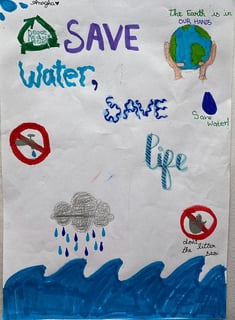 The Earth is in
OUR HANDS
SAVE
Water,
SAVE
Save
Water!
life
don't
the litter
sea